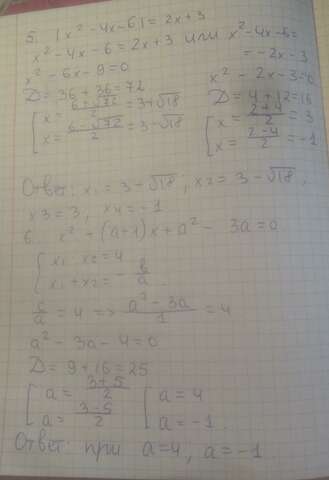 5. |x² - 4x - 6| = 2x + 3
x² - 4x - 6 = 2x + 3 или x² - 4x - 6 =
= -2x - 3
x² - 6x - 9 = 0
x² - 2x - 3 = 0
D = 36 + 36 = 72
D = 4 + 12 = 16
[ x = (6 + √72)/2 = 3 + √18
[ x = (2 + 4)/2 = 3
[ x = (6 - √72)/2 = 3 - √18
[ x = (2 - 4)/2 = -1
Ответ: x₁ = 3 + √18, x₂ = 3 - √18,
x₃ = 3, x₄ = -1
6. x² - (a+1)x + a² - 3a = 0
{ x₁ · x₂ = 4
{ x₁ + x₂ = -b/a
c/a = 4 => (a² - 3a)/1 = 4
a² - 3a - 4 = 0
D = 9 + 16 = 25
[ a = (3 + 5)/2 [ a = 4
[ a = (3 - 5)/2 [ a = -1
Ответ: при a = 4, a = -1